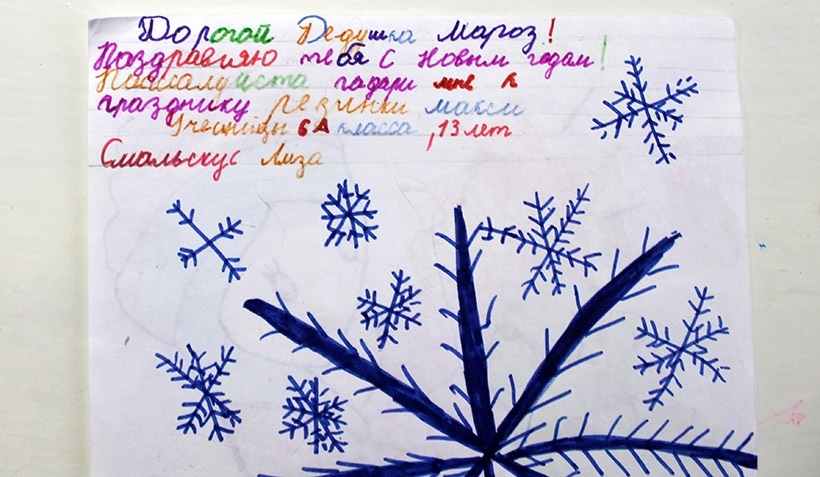 Дорогой Дедушка Мароз!
Паздравляю тебя с Новым годам!
Пожалуйста падари мне к
празднику резинки макси
Ученицы 6А класса, 13 лет
Смальскус Лиза